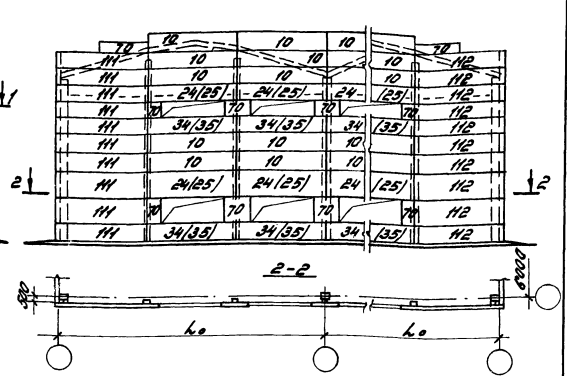 10 10 10
70 10 70
111 10 10 112
111 10 10 10 112
1 111 24(25) 24(25) 24 (25) 112
111 70 70 70 70 112
111 34(35) 34(35) 34 (35) 112
111 10 10 10 112
111 10 10 10 112
2 111 24(25) 24(25) 24 (25) 112 2
111 70 70 70 70 112
111 34(35) 34(35) 34 (35) 112
2-2
500 6000
Lo Lo